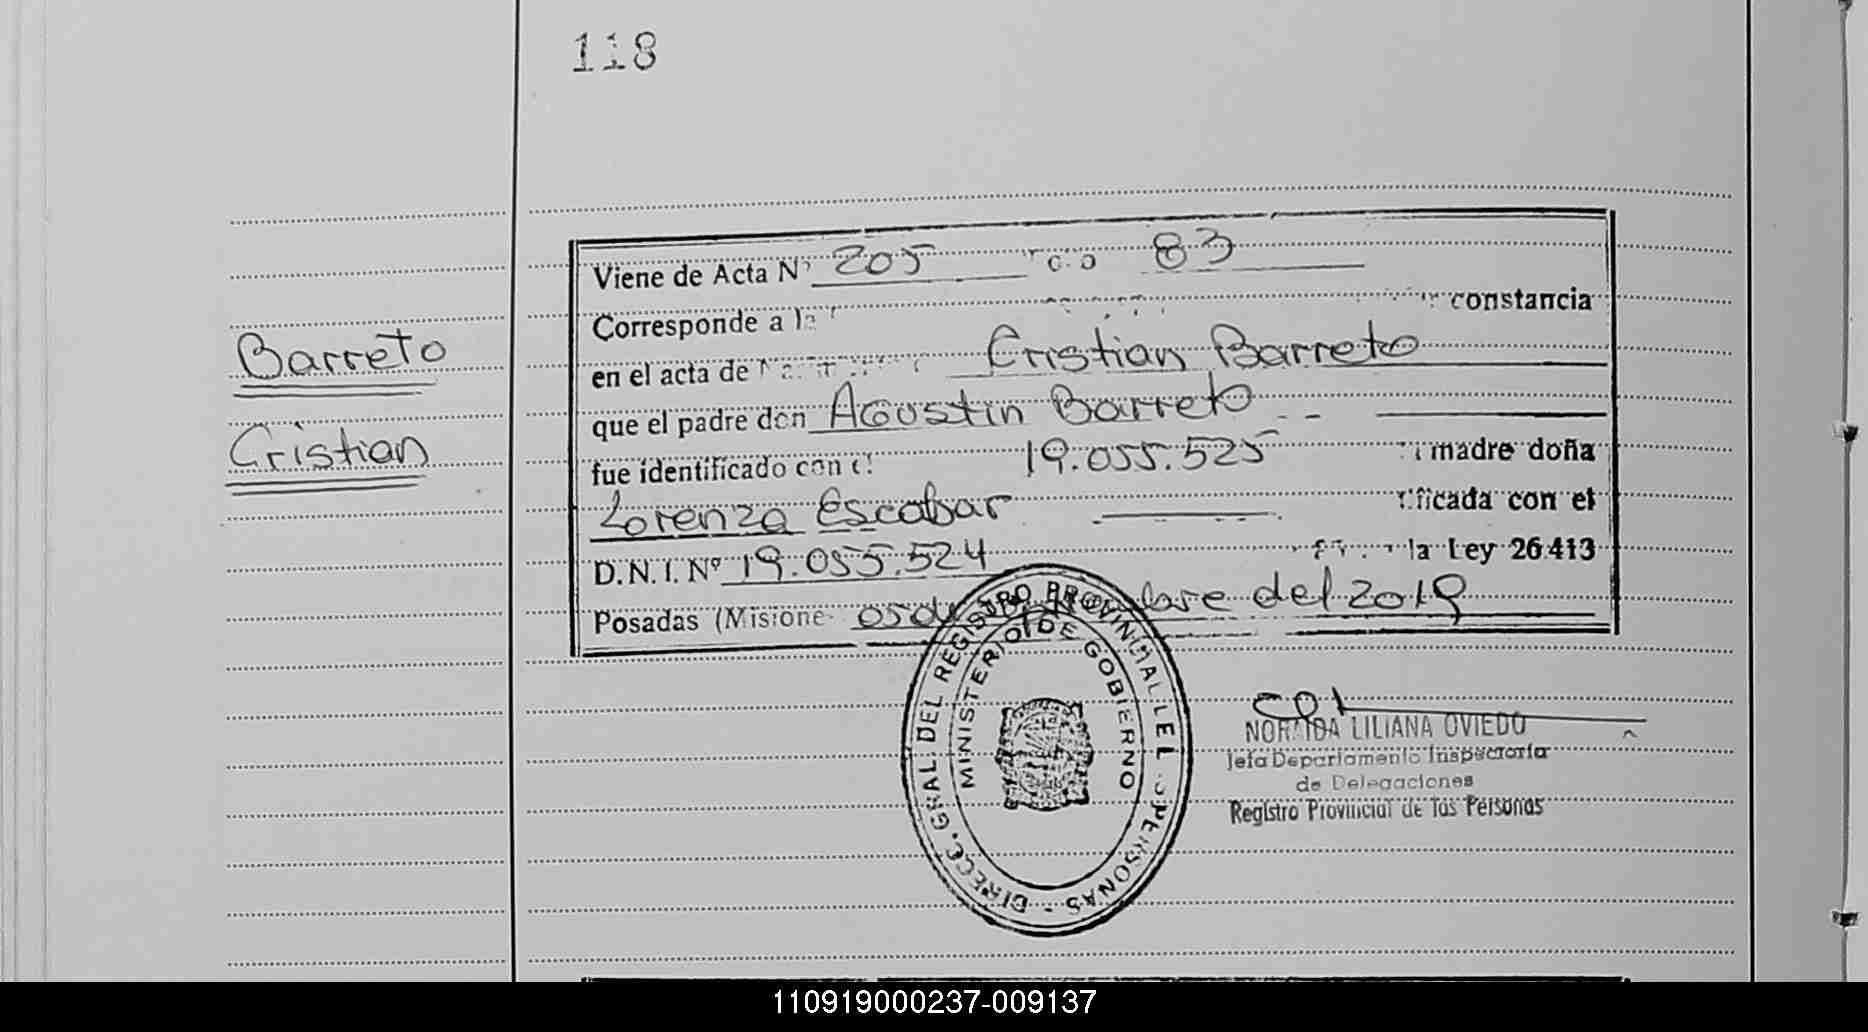 118
Viene de Acta Nº 205 83
Corresponde a la constancia
en el acta de Cristian Barreto
que el padre don Agustin Barreto
fue identificado con el 19.055.525 madre doña
Lorenza Escobar con el
D.N.I. Nº 19.055.524 la Ley 26.413
Posadas (Misione del 2019
Barreto
Cristian
DIRECC. GRAL. DEL REGISTRO PROVINCIAL DE L S PERSONAS
MINISTERIO DE GOBIERNO
LILIANA OVIEDO
Jefa Departamento Inspectoría
de Delegaciones
Registro Provincial de las Personas
110919000237-009137